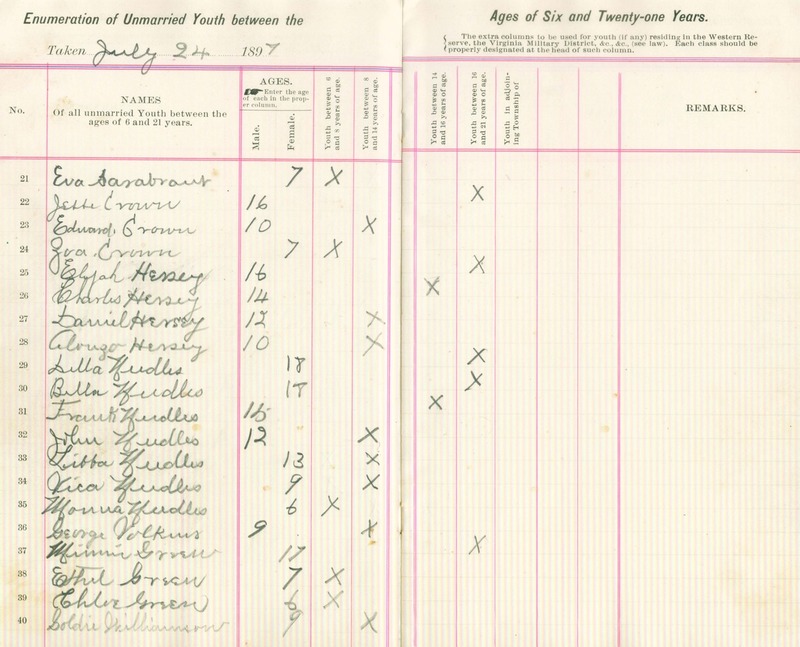 Enumeration of Unmarried Youth between the Ages of Six and Twenty-one Years.
Taken July 24 1897
The extra columns to be used for youth (if any) residing in the Western Re-
serve, the Virginia Military District, &c., &c., (see law). Each class should be
properly designated at the head of such column.
No.
NAMES
Of all unmarried Youth between the
ages of 6 and 21 years.
AGES.
Enter the age
of each in the prop-
er column.
Male.
Female.
Youth between 6
and 8 years of age.
Youth between 8
and 14 years of age.
Youth between 14
and 16 years of age.
Youth between 16
and 21 years of age.
Youth in adjoin-
ing Township of
REMARKS.
21 Eva 7 X
22 Jesse Crown 16 X
23 Edward Crown 10 X
24 Zoa Crown 7 X
25 Elijah Hersey 16 X
26 Charles Hersey 14 X
27 Daniel Hersey 12 X
28 Alonzo Hersey 10 X
29 Della Needles 18 X
30 Bella Needles 17 X
31 Frank Needles 15 X
32 John Needles 12 X
33 Libba Needles 13 X
34 Vica Needles 9 X
35 Monna Needles 6 X
36 George Volkins 9 X
37 Minnie Green 17 X
38 Ethel Green 7 X
39 Chloe Green 6 X
40 Goldie Williamson 9 X